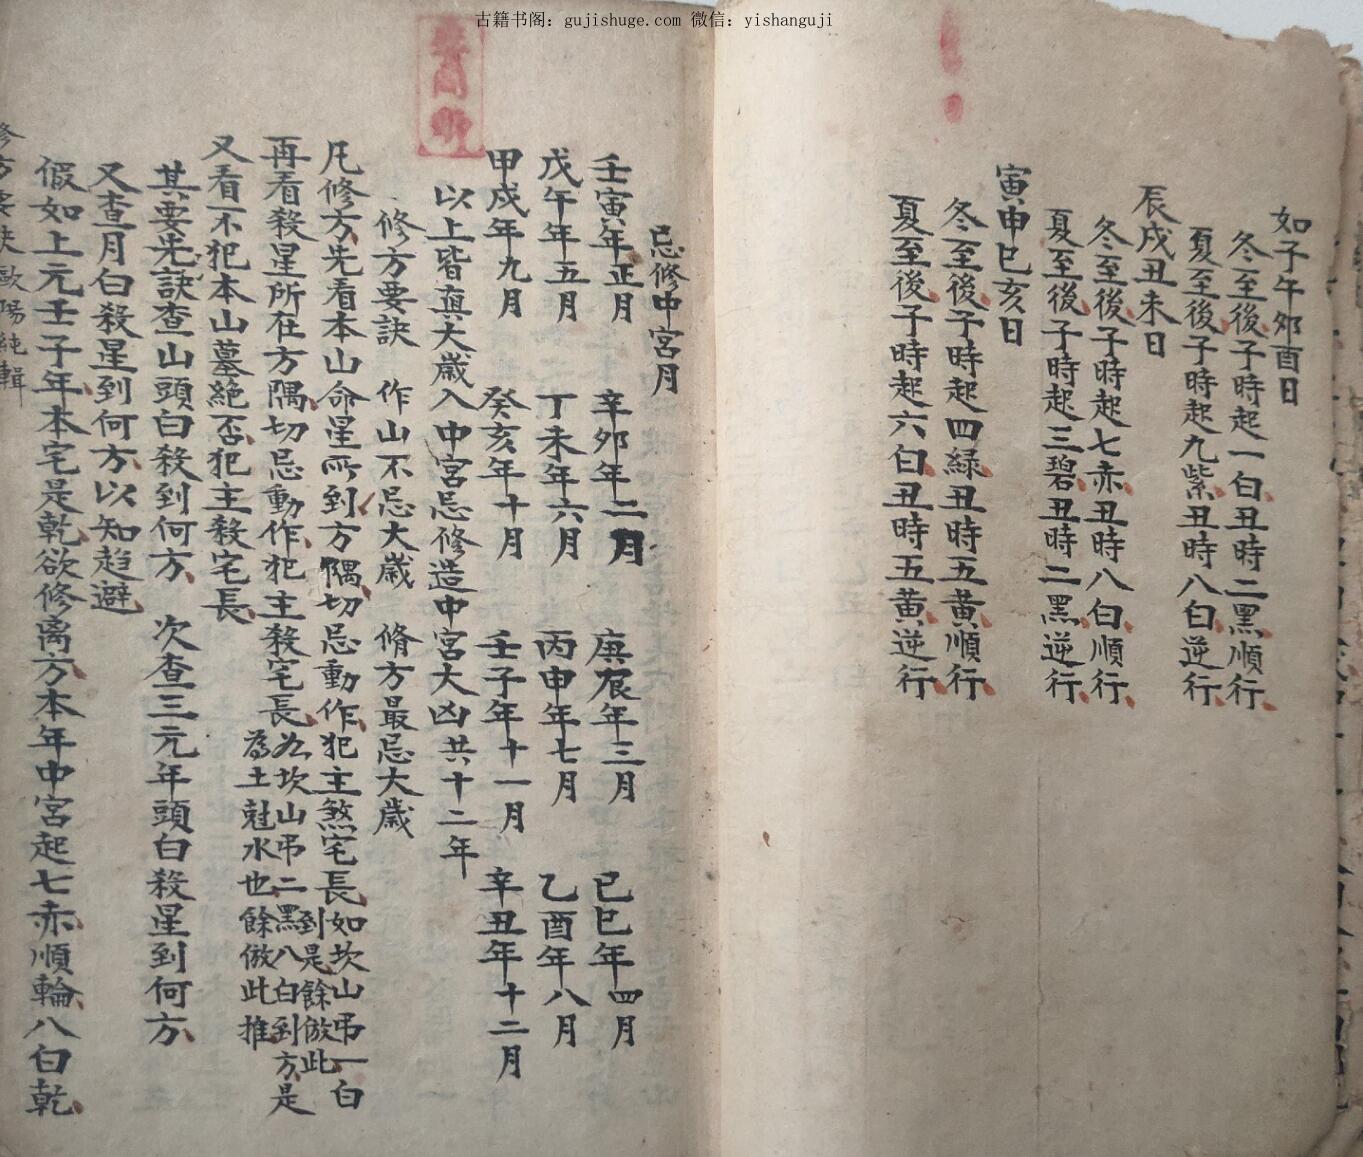 古籍书阁：gujishuge.com 微信：yishanguji
如子午夘酉日
冬至後子時起一白丑時二黑順行
夏至後子時起九紫丑時八白逆行
辰戌丑未日
冬至後子時起七赤丑時八白順行
夏至後子時起三碧丑時二黑逆行
寅申巳亥日
冬至後子時起四綠丑時五黃順行
夏至後子時起六白丑時五黃逆行
忌修中宮月
壬寅年正月 辛夘年二月 庚辰年三月 己巳年四月
戊午年五月 丁未年六月 丙申年七月 乙酉年八月
甲戌年九月 癸亥年十月 壬子年十一月 辛丑年十二月
以上皆真大歲入中宮忌修造中宮大凶共十二年
修方要訣 作山不忌大歲 脩方最忌大歲
凡修方先看本山命星所到方隅切忌動作犯主煞宅長如坎山吊一白到是餘倣此
再看殺星所在方隅切忌動作犯主殺宅長如坎山吊二黑八白到方是為土尅水也餘倣此推
又看不犯本山墓絕否犯主殺宅長
其要先訣查山頭白殺到何方 次查三元年頭白殺星到何方
又查月白殺星到何方以知趋避
假如上元壬子年本宅是乾欲修离方本年中宮起七赤順輪八白乾
修方要訣 歐陽純輯